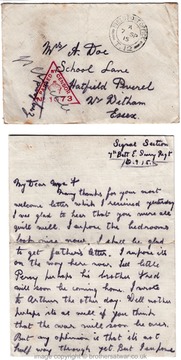 Mrs A. Doe
School Lane
Hatfield Peverel
Nr Witham
Essex
PASSED BY CENSOR
1573
Signal Section
7th Batt E. Surrey Regt
My Dear
Many thanks for your most
welcome letter which I received yesterday
I was glad to hear that you were all
quite well. I suppose the bedrooms
look nice now. I shall be glad
to get father's letter. I suppose its
on the way here now. Let
Percy perhaps his brother Fred
will soon be coming home. I wrote
to Arthur the other day. Well mother
perhaps its as well if you think
that the war will soon be over.
But my opinion is that it's not
half way through yet But I suppose